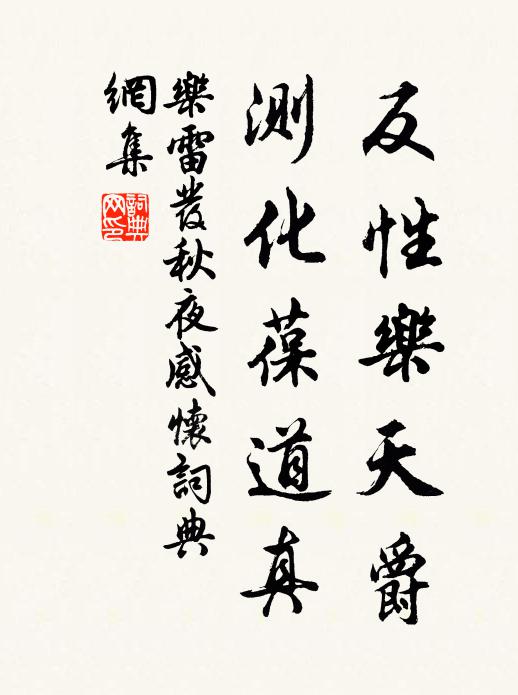 反性樂天爵
測化葆道真
樂雷發秋夜感懷詞典
網集
詞典
网印